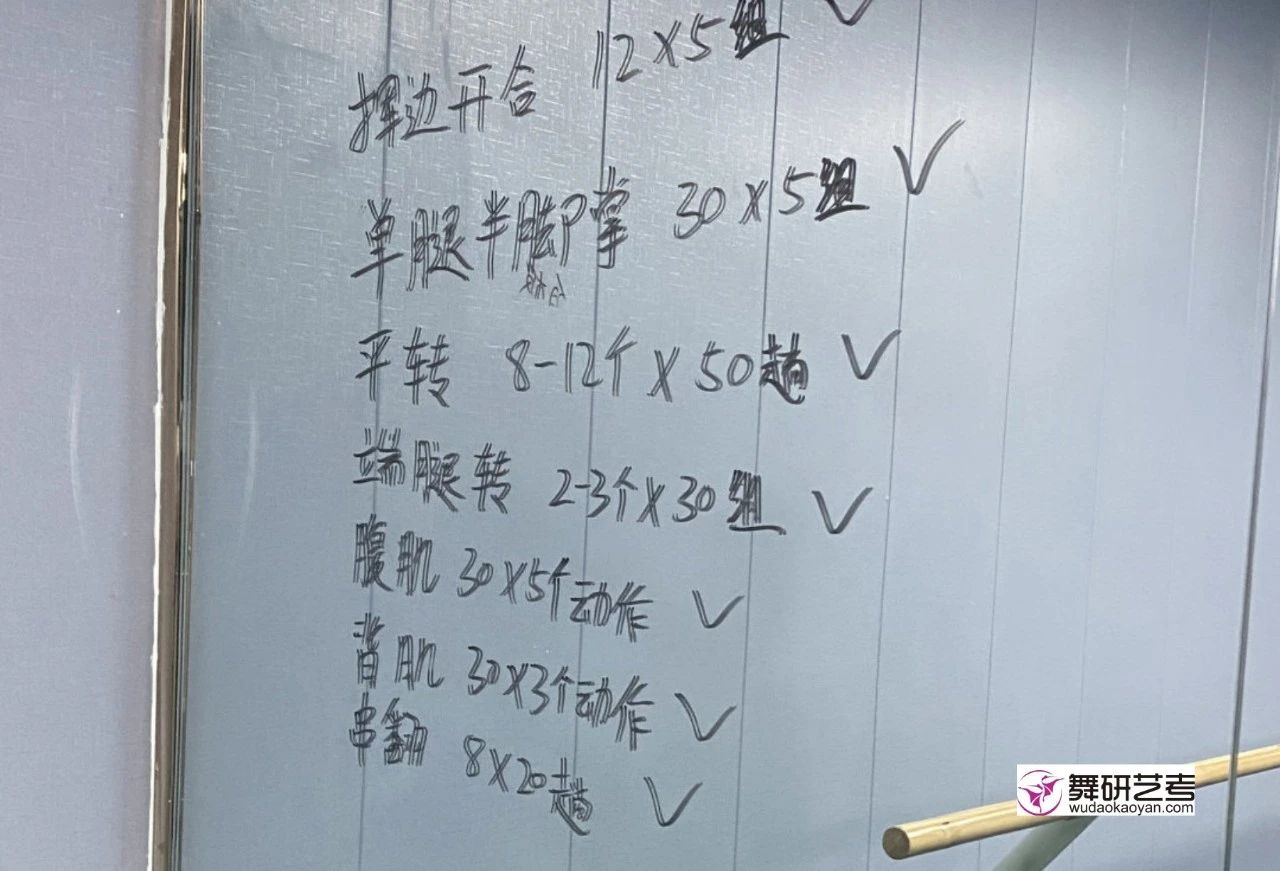 擢边开合 12×5组 ✓
单腿半脚掌 30×5组 ✓
平转 8-12个×50趟 ✓
端腿转 2-3个×30组 ✓
腹肌 30×5个动作 ✓
背肌 30×3个动作 ✓
串翻 8×20趟 ✓
舞研艺考
wudaokaoyan.com